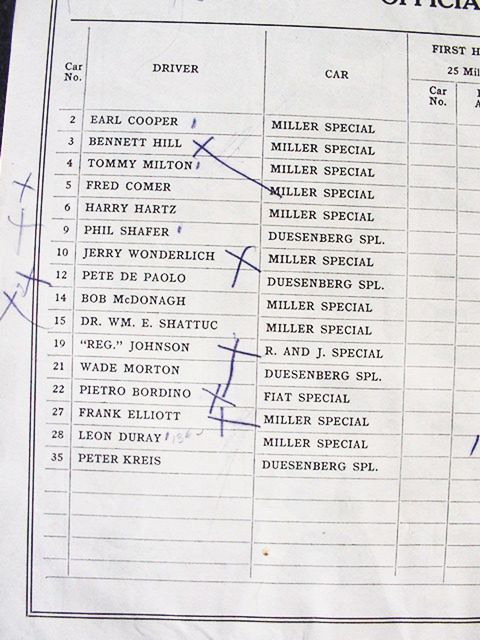 OFFICIA
Car No. DRIVER CAR FIRST H
25 Mil
Car No.
2 EARL COOPER MILLER SPECIAL
3 BENNETT HILL MILLER SPECIAL
4 TOMMY MILTON MILLER SPECIAL
5 FRED COMER MILLER SPECIAL
6 HARRY HARTZ MILLER SPECIAL
9 PHIL SHAFER DUESENBERG SPL.
10 JERRY WONDERLICH MILLER SPECIAL
12 PETE DE PAOLO DUESENBERG SPL.
14 BOB McDONAGH MILLER SPECIAL
15 DR. WM. E. SHATTUC MILLER SPECIAL
19 "REG." JOHNSON R. AND J. SPECIAL
21 WADE MORTON DUESENBERG SPL.
22 PIETRO BORDINO FIAT SPECIAL
27 FRANK ELLIOTT MILLER SPECIAL
28 LEON DURAY MILLER SPECIAL
35 PETER KREIS DUESENBERG SPL.